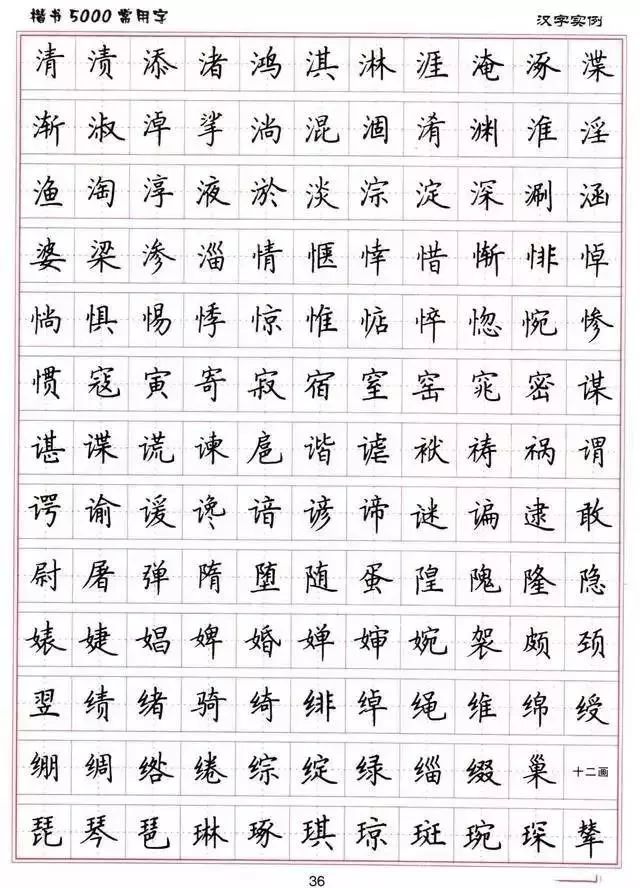 楷书5000常用字 汉字实例
清渍添渚鸿淇淋涯淹涿渫
渐淑淖挲淌混涸淆渊淮淫
渔淘淳液淤淡淙淀深涮涵
婆梁渗淄情惬悻惜惭悱悼
惝惧惕悸惊惟惦悴惚惋惨
惯寇寅寄寂宿窒窑窕密谋
谌谍谎谏扈谐谑袱祷祸谓
谔谕谖谗谙谚谛谜谝逮敢
尉屠弹隋堕随蛋隍隗隆隐
婊婕娼婢婚婵婶婉袈颇颈
翌绩绪骑绮绯绰绳维绵绶
绷绸绺绻综绽绿缁缀巢十二画
琵琴琶琳琢琪琼斑琬琛辇
36